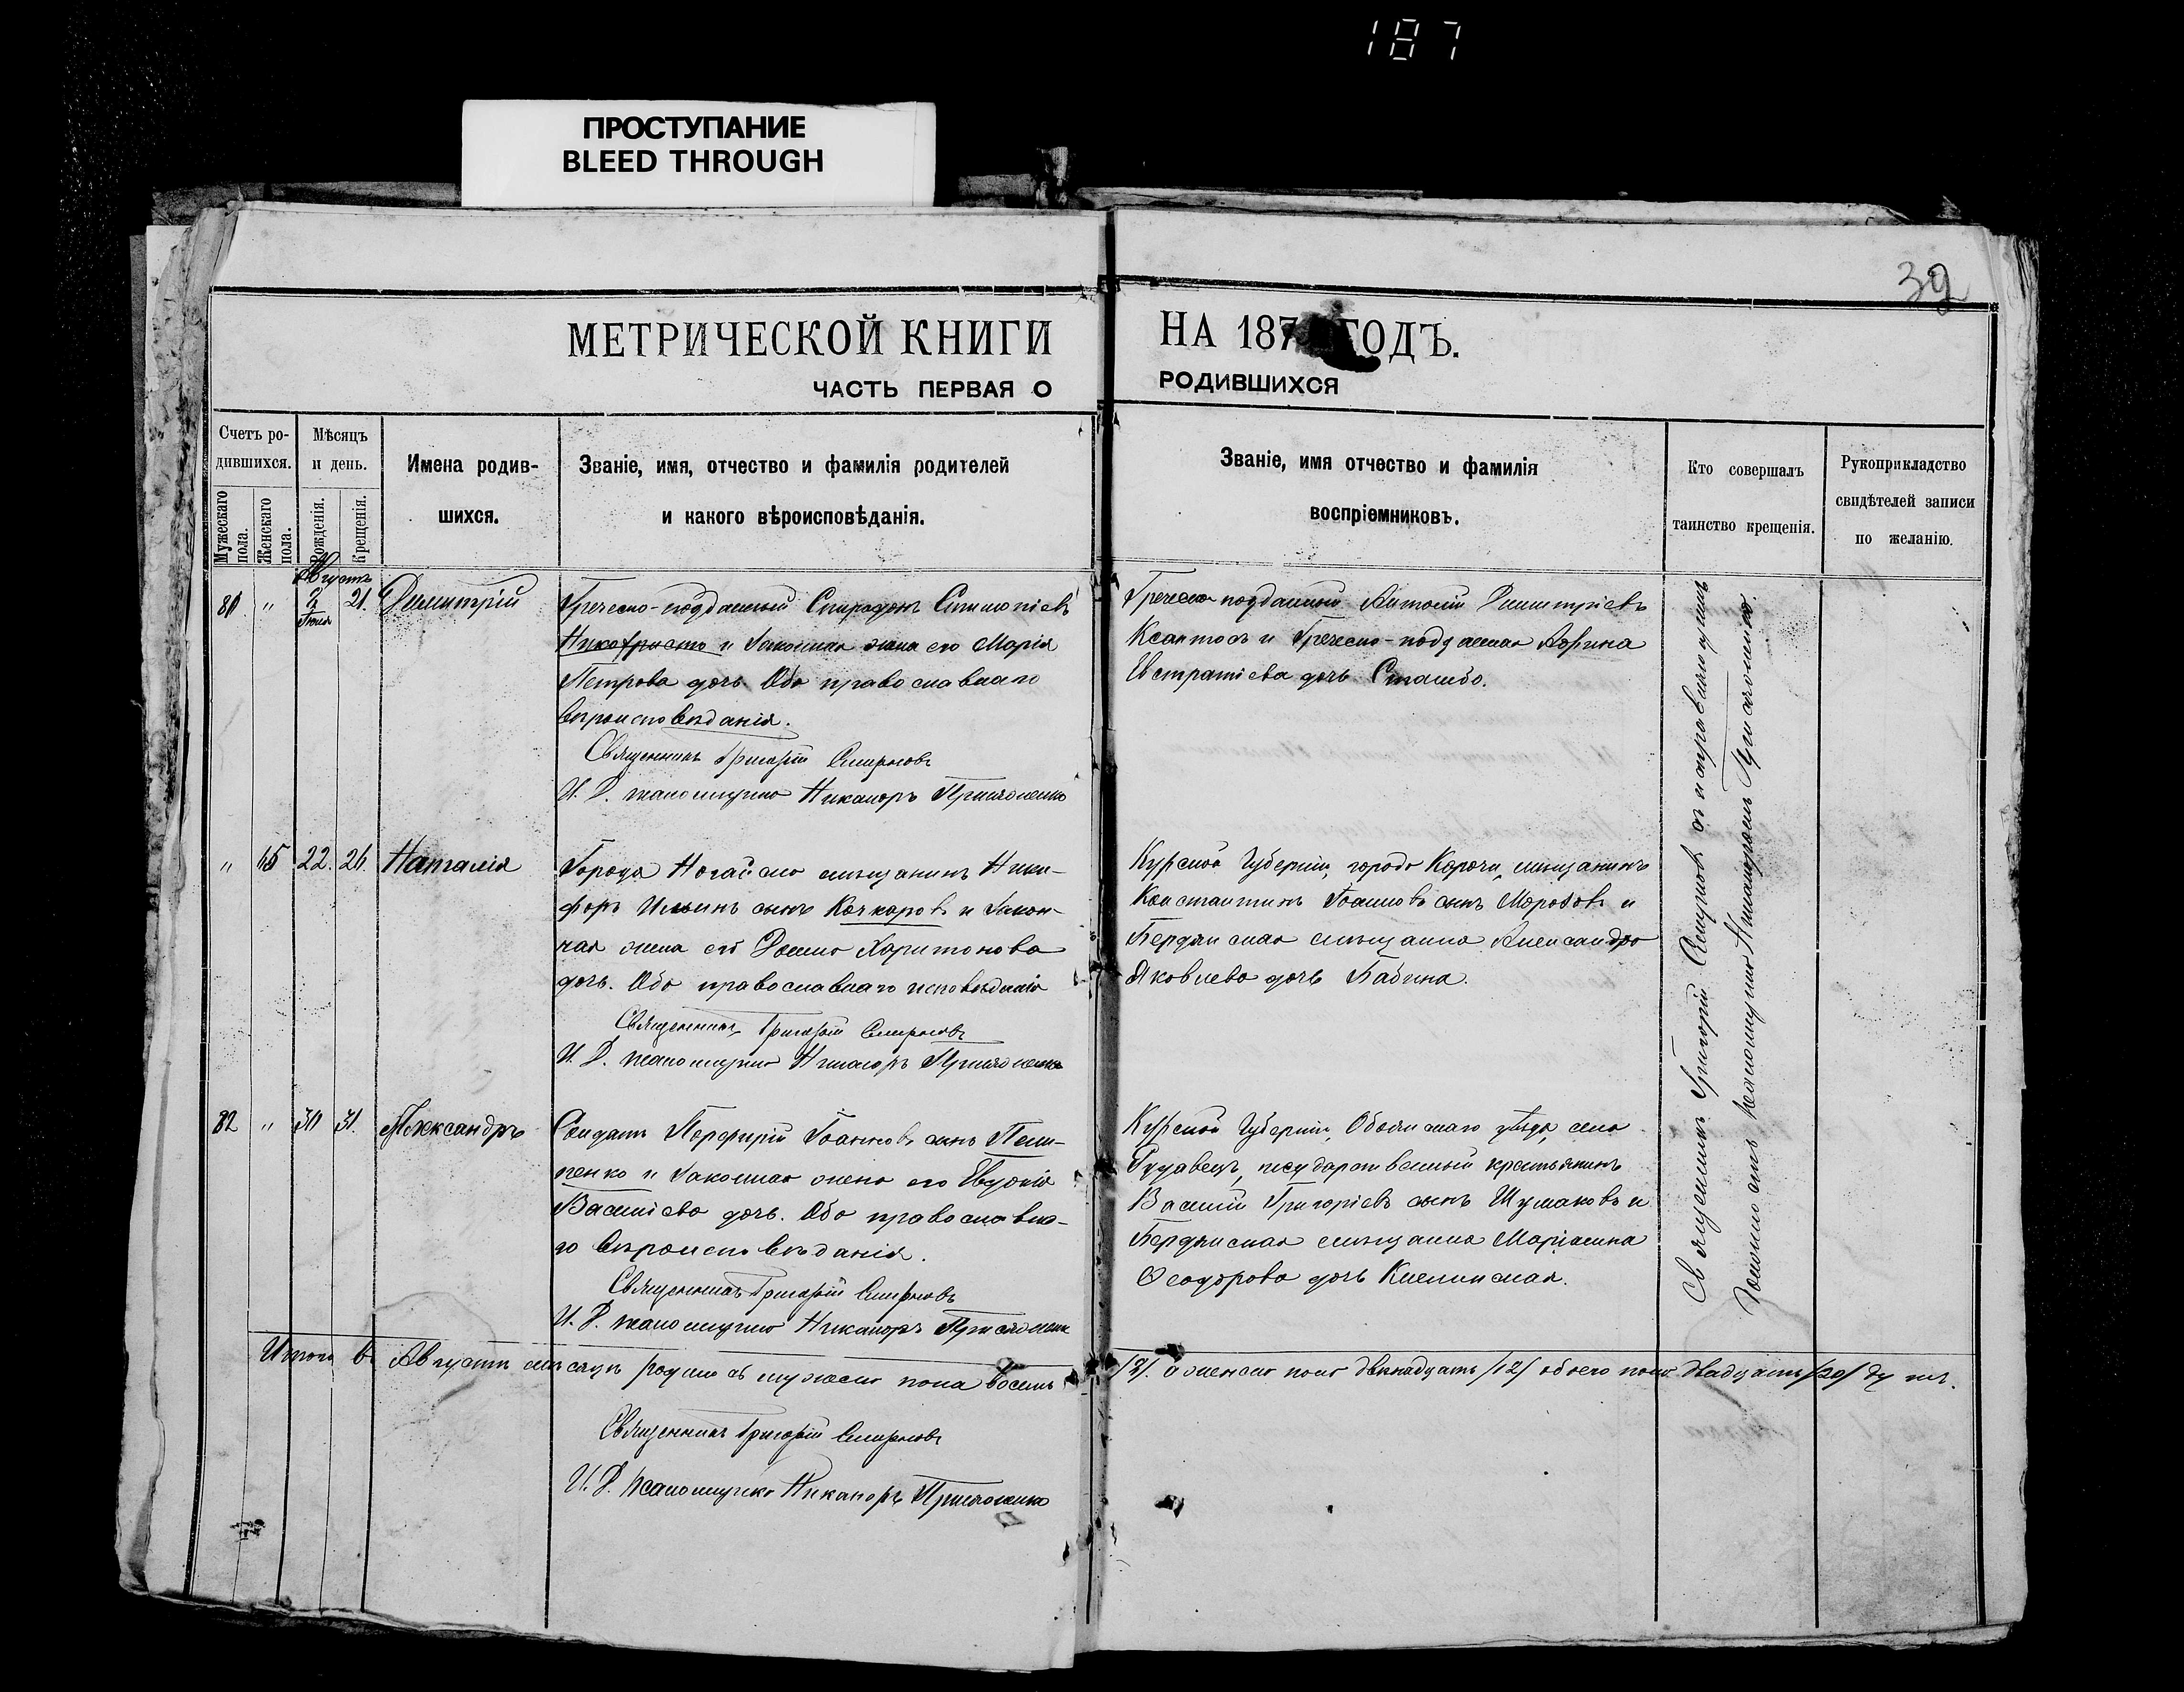 187
ПРОСТУПАНИЕ
BLEED THROUGH
39
МЕТРИЧЕСКОЙ КНИГИ НА 187 ГОДЪ.
ЧАСТЬ ПЕРВАЯ О РОДИВШИХСЯ
Счетъ ро-
дившихся.
Мужескаго пола.
Женскаго пола.
Мѣсяцъ
и день.
Рожденія.
Крещенія.
Имена родив-
шихся.
Званіе, имя, отчество и фамилія родителей
и какого вѣроисповѣданія.
Званіе, имя отчество и фамилія
воспріемниковъ.
Кто совершалъ
таинство крещенія.
Рукоприкладство
свидѣтелей записи
по желанію.
Августъ
81 " 2 Іюля 21. Димитрій
Греческо-подданный Спиридонъ
и законная жена его Марія
Петрова дочь. Оба православнаго
вѣроисповѣданія.
Священникъ Григорій Смирновъ
И. Д. псаломщика Никаноръ
Греческо подданный Антоній Димитріевъ
Ксантосъ и Греческо-подданная
Евстратіева дочь
" 65 22. 26. Наталія
Города Ногайска мѣщанинъ Ники-
форъ Ильинъ сынъ Качкаровъ и закон-
ная жена его Харитонова
дочь. Оба православнаго исповѣданія
Священникъ Григорій Смирновъ
И. Д. псаломщика Никаноръ
Курской Губерніи, города Корочи, мѣщанинъ
Константинъ Іоанновъ сынъ Морозовъ и
Бердянская мѣщанка Александра
Яковлева дочь Бабина.
82 " 30 31. Александръ
Солдатъ Порфирій Іоанновъ сынъ
и законная жена его Евдокія
Василіева дочь. Оба православна-
го вѣроисповѣданія.
Священникъ Григорій Смирновъ
И. Д. псаломщика Никаноръ
Курской Губерніи, Обоянскаго уѣзда, села
государственный крестьянинъ
Василій Григоріевъ сынъ Шумаковъ и
Бердянская мѣщанка
Ѳеодорова дочь
Священникъ Григорій Смирновъ съ исправляющимъ
должность псаломщика Никаноромъ
Итого въ Августѣ мѣсяцѣ родилось мужеска пола восемь /8/. а женска пола двѣнадцать /12/ обоего пола двадцать /20/ душъ.
Священникъ Григорій Смирновъ
И. Д. псаломщика Никаноръ